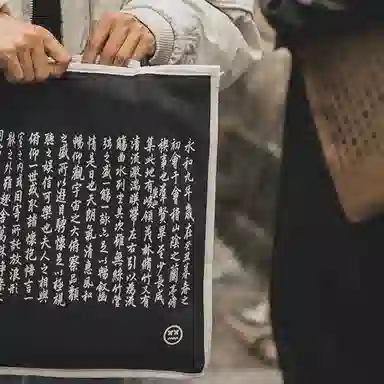 永和九年歲在癸丑暮春之
初會于會稽山陰之蘭亭脩
禊事也群賢畢至少長咸
集此地有峻領茂林脩竹又有
清流激湍暎帶左右引以為流
觴曲水列坐其次雖無絲竹管
弦之盛一觴一詠亦足以暢敘幽
情是日也天朗氣清惠風和
暢仰觀宇宙之大俯察品類
之盛所以遊目騁懷足以極視
聽之娛信可樂也夫人之相與
俯仰一世或取諸懷抱悟言
一室之內或因寄所託放浪形
骸之外雖趣舍萬殊靜躁不